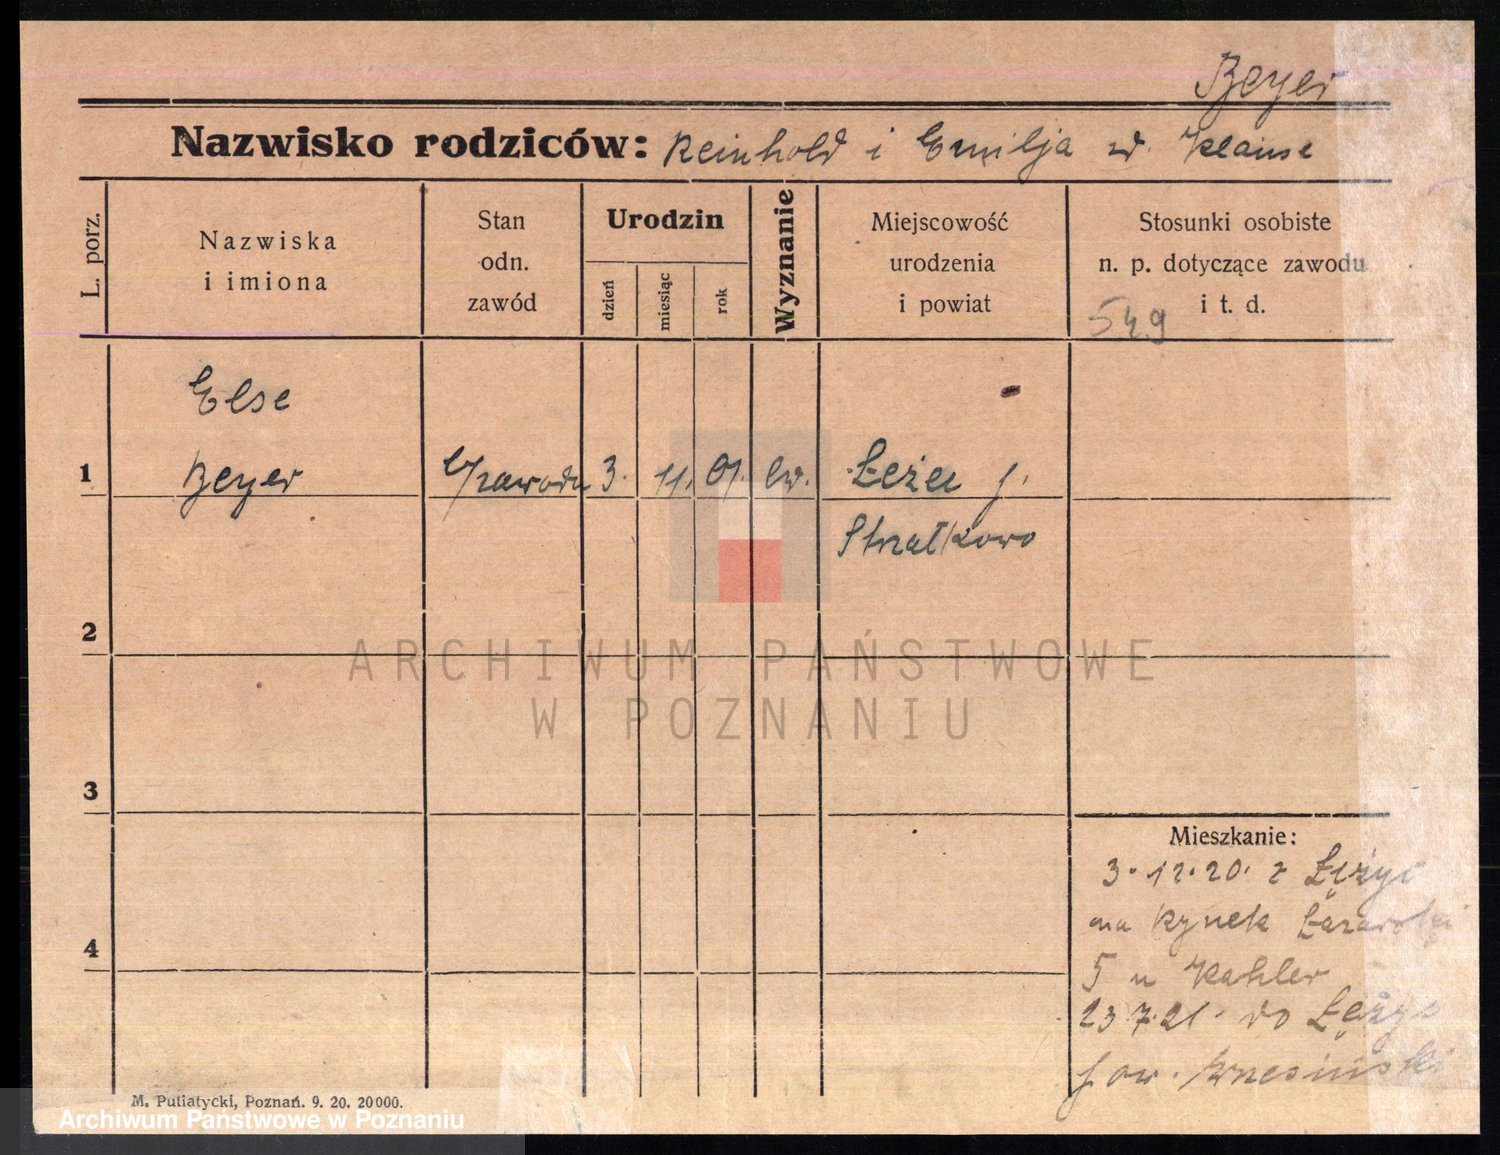 Beyer
Nazwisko rodziców: Reinhold i Emilja zd. Klause
L. porz.
Nazwiska
i imiona
Stan
odn.
zawód
Urodzin
dzień
miesiąc
rok
Wyznanie
Miejscowość
urodzenia
i powiat
Stosunki osobiste
n. p. dotyczące zawodu
i t. d.
549
Else
1 Beyer b/zawodu 3. 11. 01. ew.
Strzałkowo
2
3
4
Mieszkanie:
3.12.20. z Łężyc
na Rynek Łazarski
5 u Kahler
23.7.21. do Łężyc
pow. Wrzesiński
M. Putiatycki, Poznań. 9. 20. 20000.
ARCHIWUM PAŃSTWOWE
W POZNANIU
Archiwum Państwowe w Poznaniu